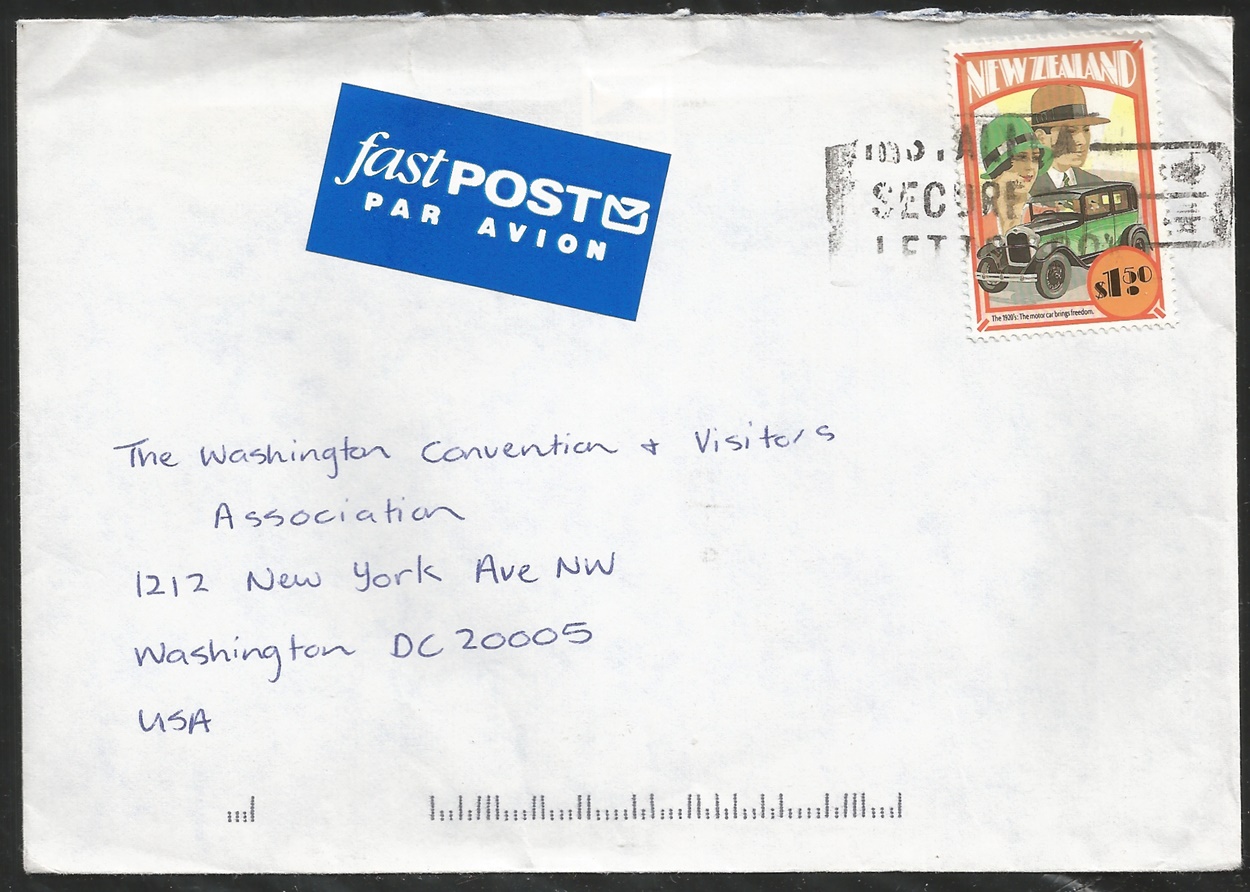 fast POST
PAR AVION
NEW ZEALAND
SECURE
$1.50
The 1920's: The motor car brings freedom.
The Washington Convention + Visitors
Association
1212 New York Ave NW
Washington DC 20005
USA